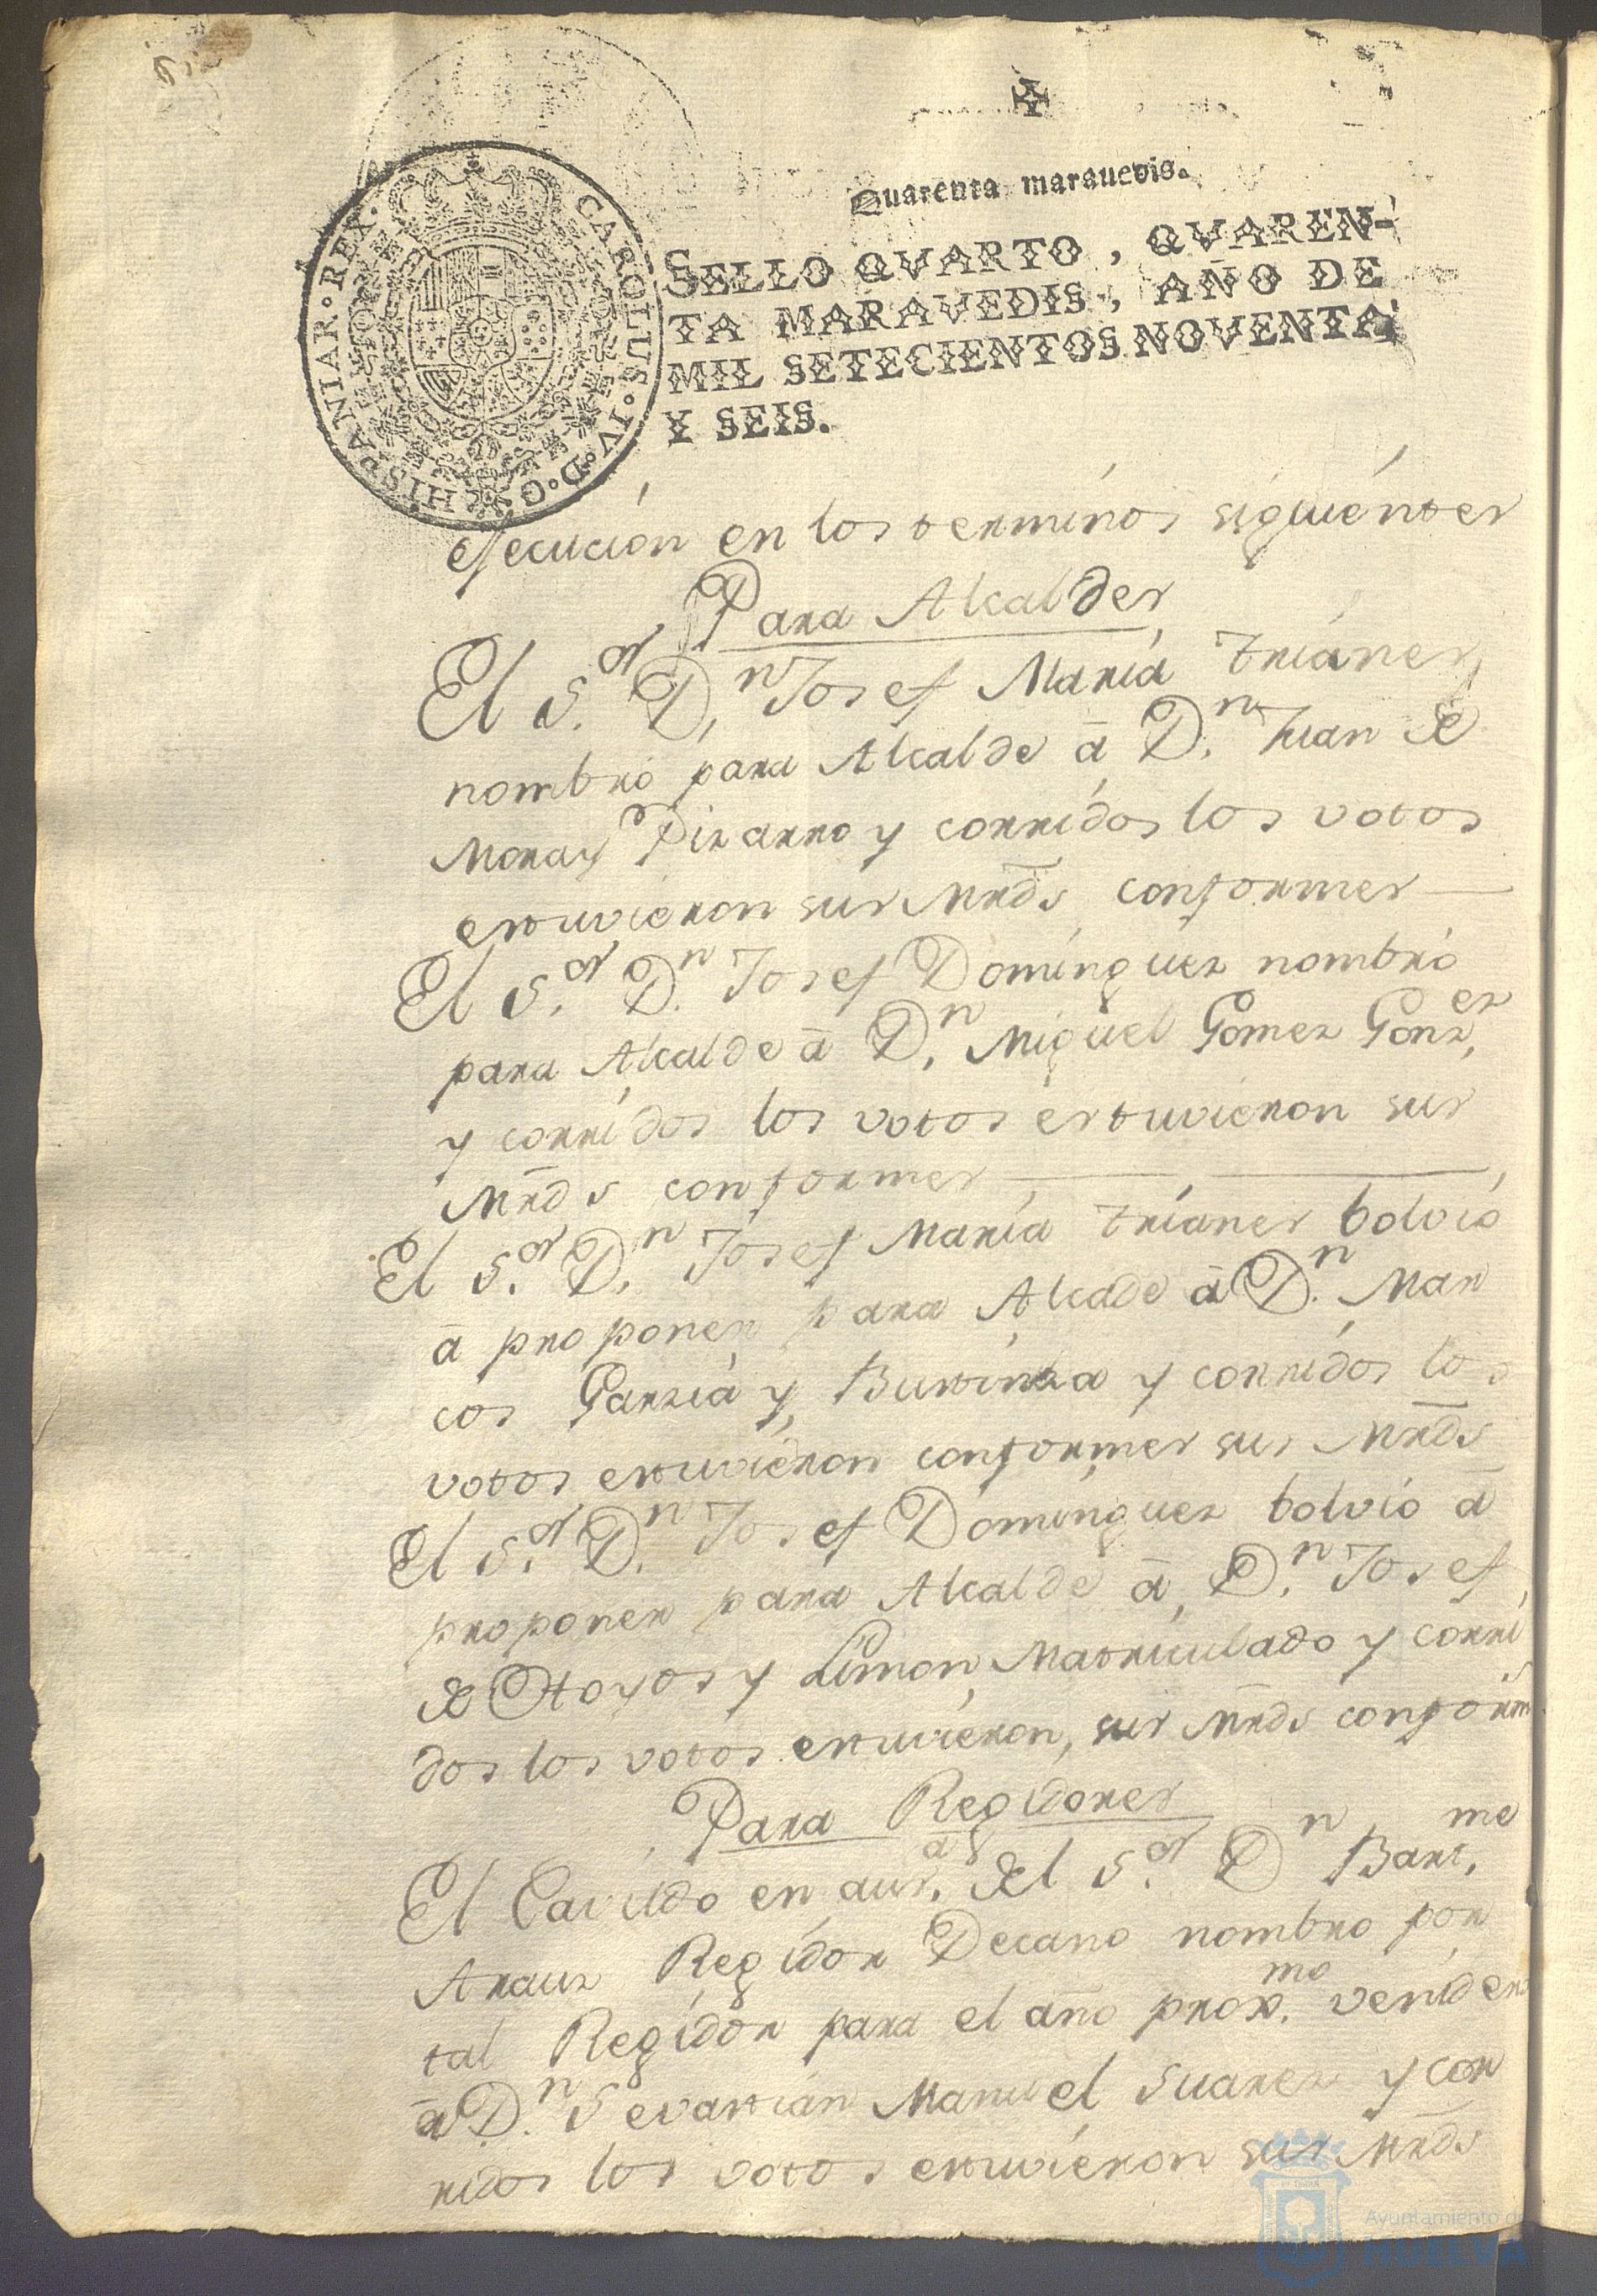 Quarenta marauedis.
SELLO QVARTO, QVAREN-
TA MARAVEDIS, AÑO DE
MIL SETECIENTOS NOVENTA
Y SEIS.
CAROLUS·IV·D·G·HISPANIAR·REX·
ejecucion en los terminos siguientes
Para Alcaldes
El S.or D.n Josef Maria Trianes
nombró para Alcalde á D.n Juan de
Mora y Pizarro y corridos los votos
estuvieron sus Mrds conformes
El S.or D.n Josef Dominguez nombró
para Alcalde á D.n Miguel Gomez Gonz.ez
y corridos los votos estuvieron sus
Mrds conformes
El S.or D.n Josef Maria Trianes bolvió
á proponer para Alcade á D.n Mar
cos Garzia y Bustinza y corridos los
votos estuvieron conformes sus Mrds
El S.or D.n Josef Dominguez bolvió á
proponer para Alcalde á D.n Josef
de Hoyos y Limon, Matriculado y corri
dos los votos estuvieron, sus Mrds conform
Para Regidores
El Cavildo en aus.a del S.or D.n Bart.me
Arauz Regidor Decano nombro por
tal Regidor para el año prox.mo venidero
á D.n Sevastian Manuel Suarez y cor
ridos los votos estuvieron sus Mrds
Ayuntamiento de
HUELVA